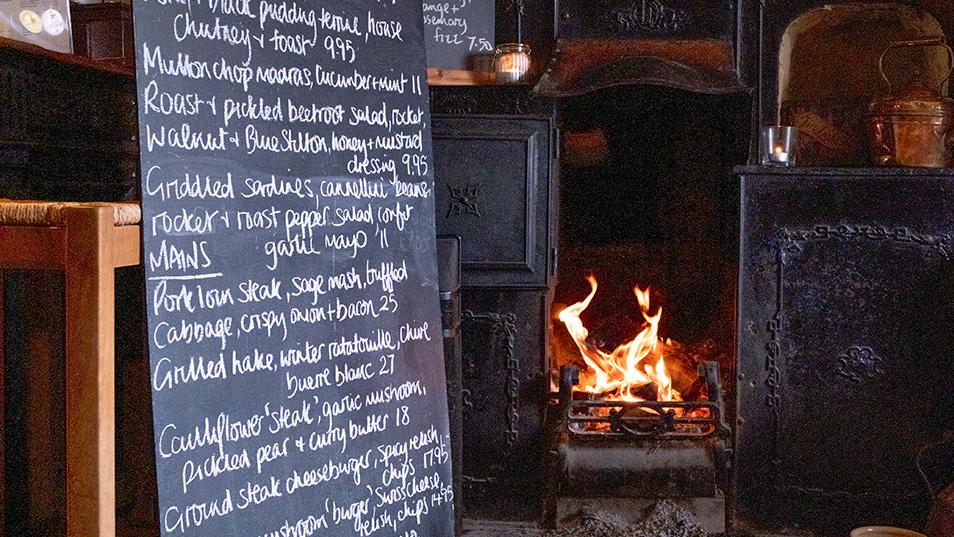 black pudding terrine, house
Chutney + toast 9.95
Mutton chop madras, Cucumber + mint 11
Roast + pickled beetroot salad, rocket,
Walnut + Blue Stilton, honey + mustard
dressing 9.95
Griddled sardines, cannellini beans
rocket + roast pepper salad, confit
garlic mayo 11
MAINS
Pork loin steak, sage mash, truffled
Cabbage, crispy onion + bacon 25
Grilled hake, winter ratatouille, chive
buerre blanc 27
Cauliflower 'steak', garlic mushroom,
Pickled pear + curry butter 18
Ground steak cheeseburger, spicy relish
chips 17.95
mushroom 'burger', Swiss cheese,
relish, chips 14.95
ange +
rosemary
fizz 7.50